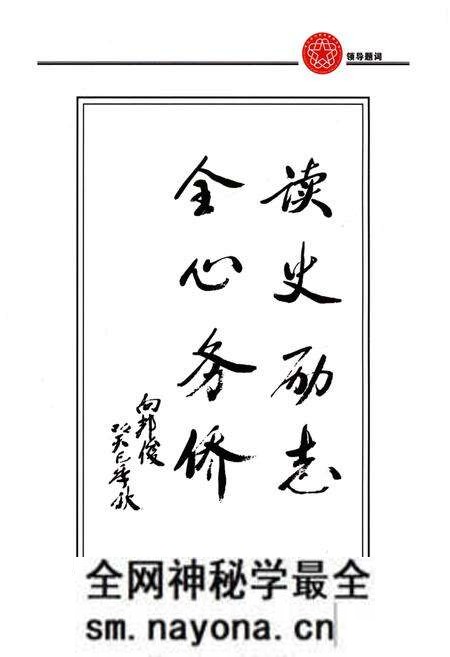 领导题词
读史励志
全心务侨
向邦俊
癸巳季秋
全网神秘学最全
sm.nayona.cn